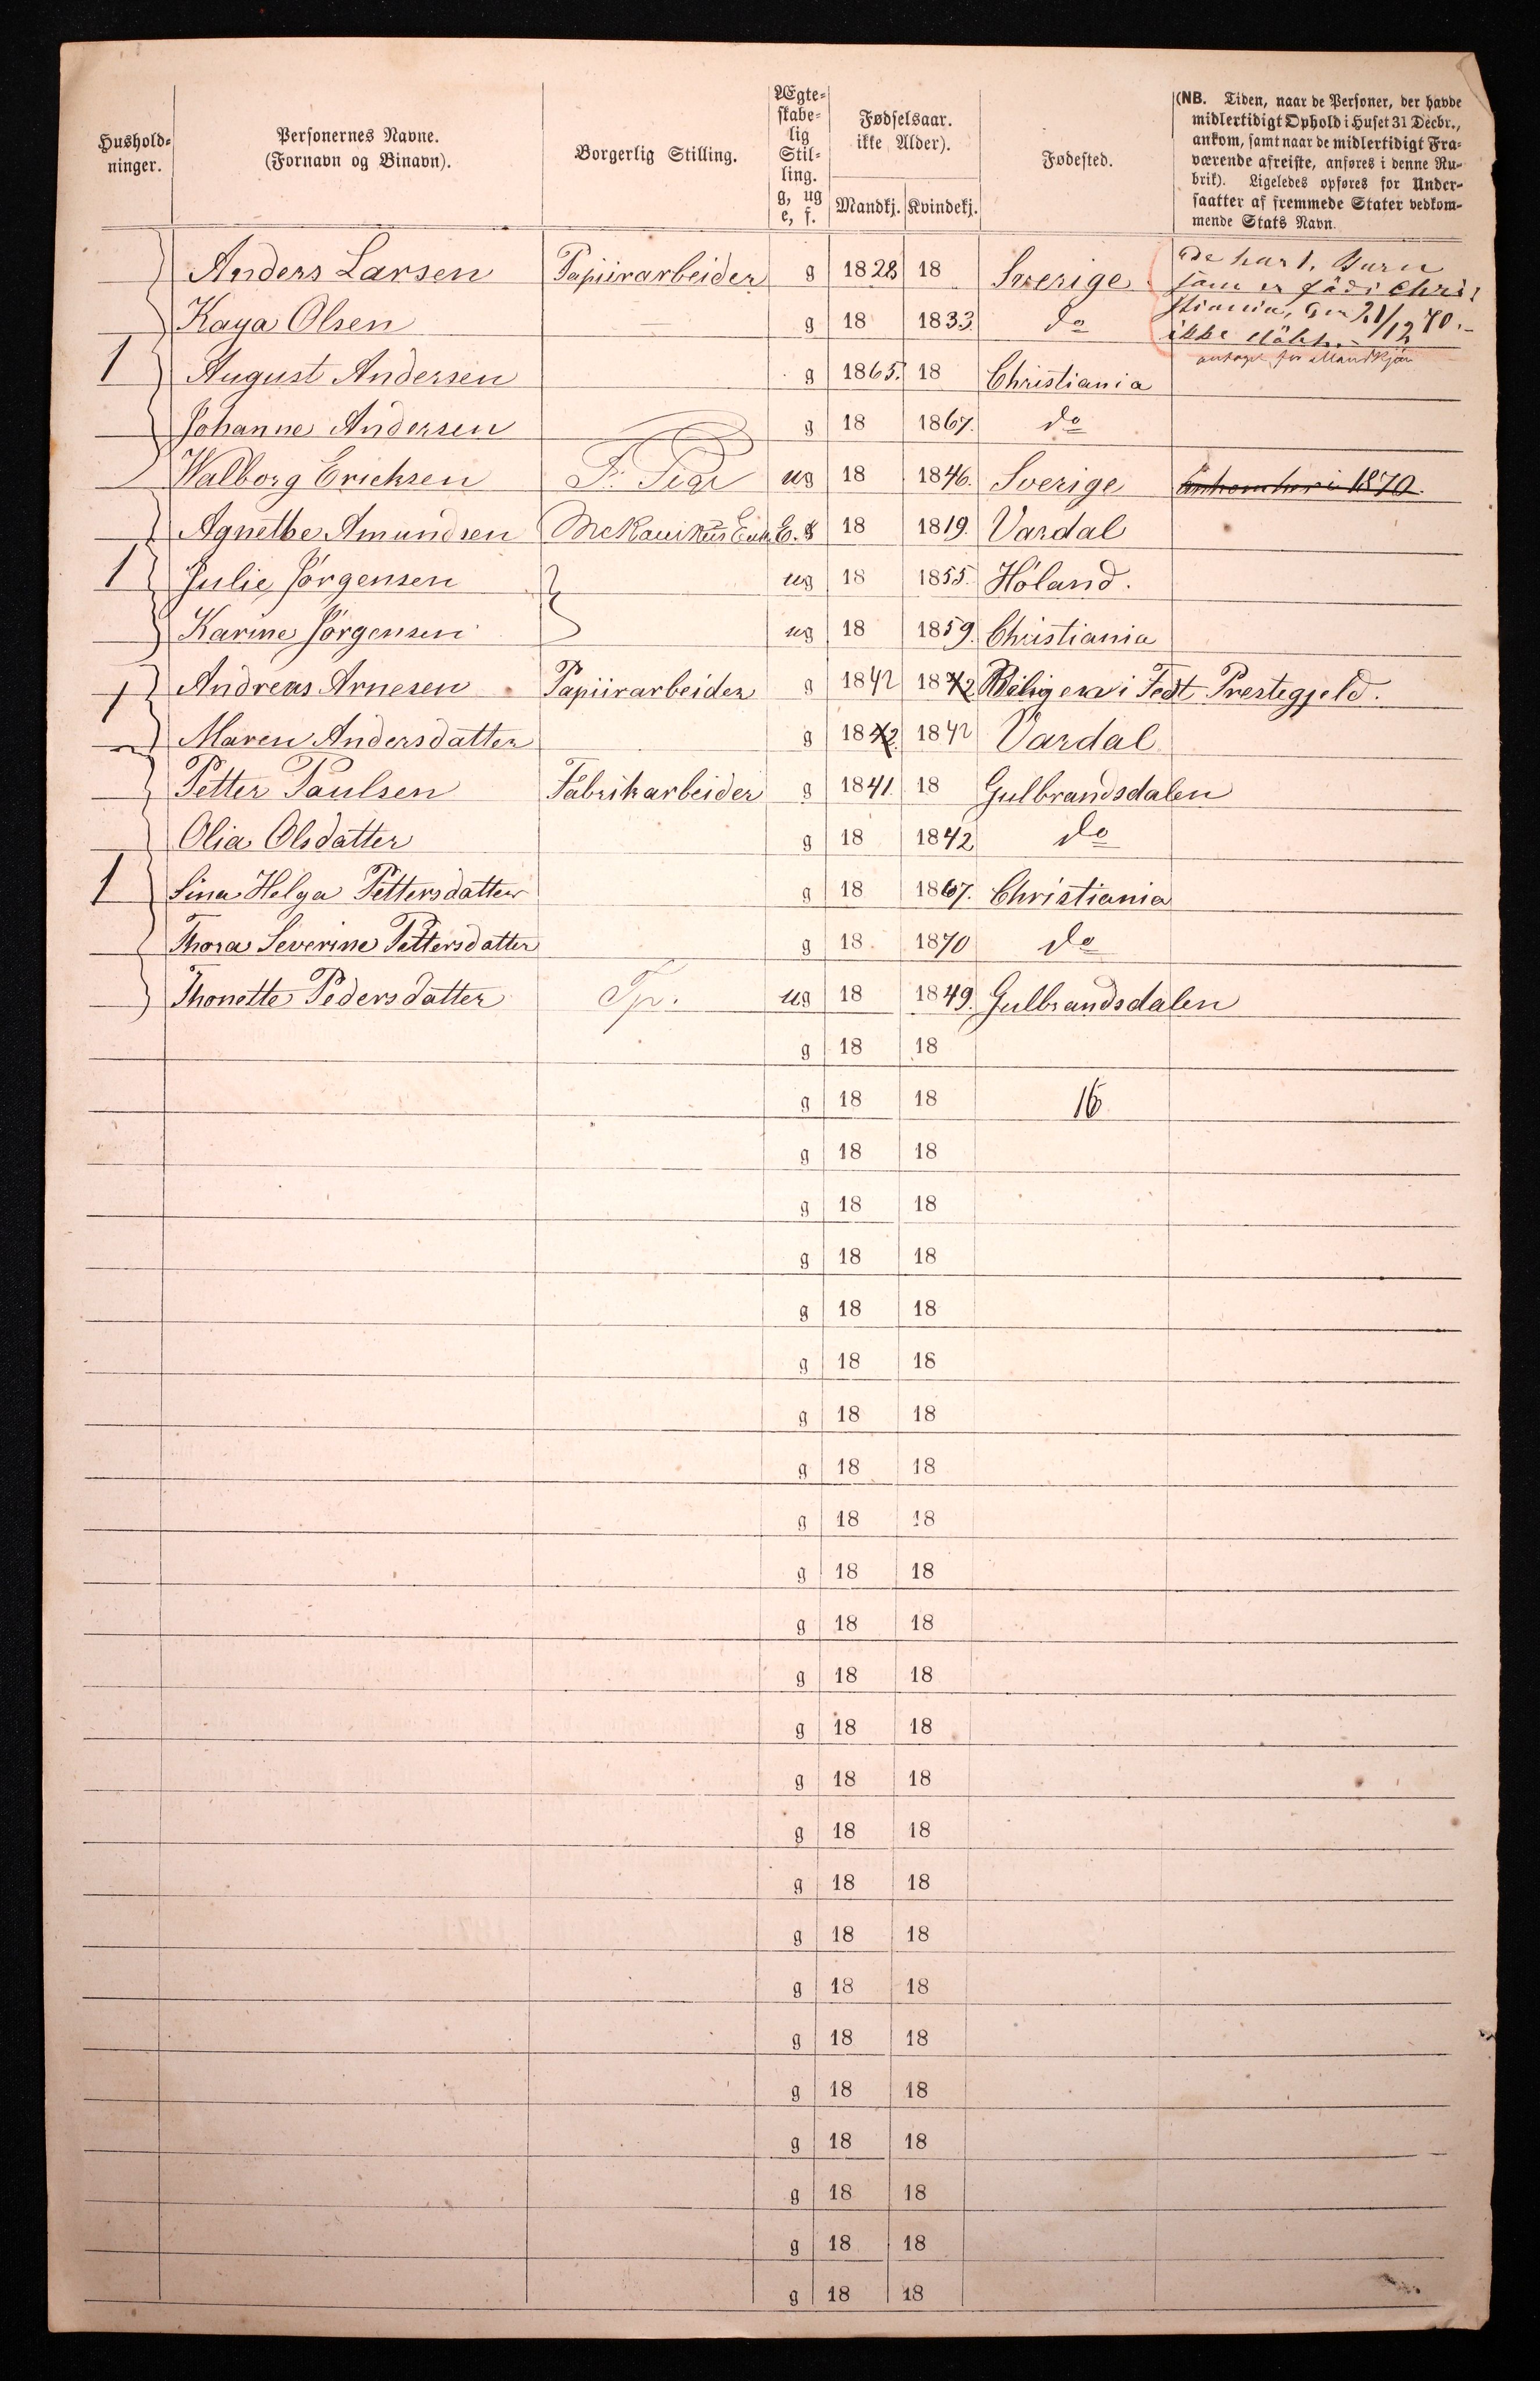 Hushold-
ninger.
Personernes Navne.
(Fornavn og Binavn).
Borgerlig Stilling.
Ægte-
skabe-
lig
Stil-
ling.
g, ug
e, f.
Fødselsaar.
ikke Alder).
Mandkj. Kvindekj.
Fødested.
(NB. Tiden, naar de Personer, der havde
midlertidigt Ophold i Huset 31 Decbr.,
ankom, samt naar de midlertidigt Fra-
værende afreiste, anføres i denne Ru-
brik). Ligeledes opføres for Under-
saatter af fremmede Stater vedkom-
mende Stats Navn.
Anders Larsen Papiirarbeider g 1828 18 Sverige
de har 1. Barn
som er föd i Chri-
stiania, den 21/12 70.
ikke döbt.
antaget for Mandkjön
Kaya Olsen — g 18 1833. do
1 August Andersen g 1865. 18 Christiania
Johanne Andersen g 18 1867. do
Walborg Ericksen F. Pige ug 18 1846. Sverige 1870.
Agnethe Amundsen Mekanikus Enke E. g 18 1819. Vardal
1 Julie Jörgensen ug 18 1855. Höland.
Karine Jörgensen ug 18 1859. Christiania
1 Andreas Arnesen Papiirarbeider g 1842 1842 i Prestegjeld.
Maren Andersdatter g 1842 1842 Vardal
Petter Paulsen Fabrikarbeider g 1841. 18 Gulbrandsdalen
Olia Olsdatter g 18 1842 do
1 Sina Helga Pettersdatter g 18 1867. Christiania
Thora Severine Pettersdatter g 18 1870 do
Thonette Pedersdatter Tp. ug 18 1849. Gulbrandsdalen
g 18 18
g 18 18 16
g 18 18
g 18 18
g 18 18
g 18 18
g 18 18
g 18 18
g 18 18
g 18 18
g 18 18
g 18 18
g 18 18
g 18 18
g 18 18
g 18 18
g 18 18
g 18 18
g 18 18
g 18 18
g 18 18
g 18 18
g 18 18
g 18 18
g 18 18